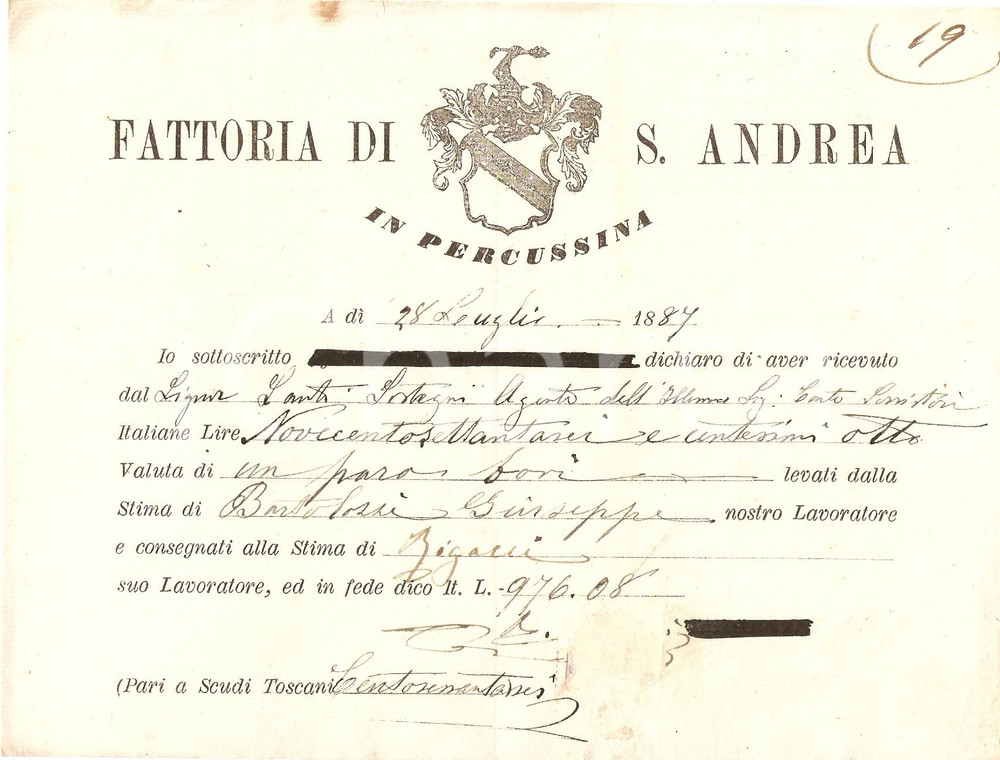 19
FATTORIA DI S. ANDREA
IN PERCUSSINA
A dì 28 Luglio 1887
Io sottoscritto dichiaro di aver ricevuto
dal Signor Santi Sostegni Agente dell' Illmo Sig: Conte Serristori
Italiane Lire Novecentosettantasei e centesimi otto
Valuta di un paro bovi levati dalla
Stima di Bartolozzi Giuseppe nostro Lavoratore
e consegnati alla Stima di Bigacci
suo Lavoratore, ed in fede dico It. L. 976.08
(Pari a Scudi Toscani Centosessantasei